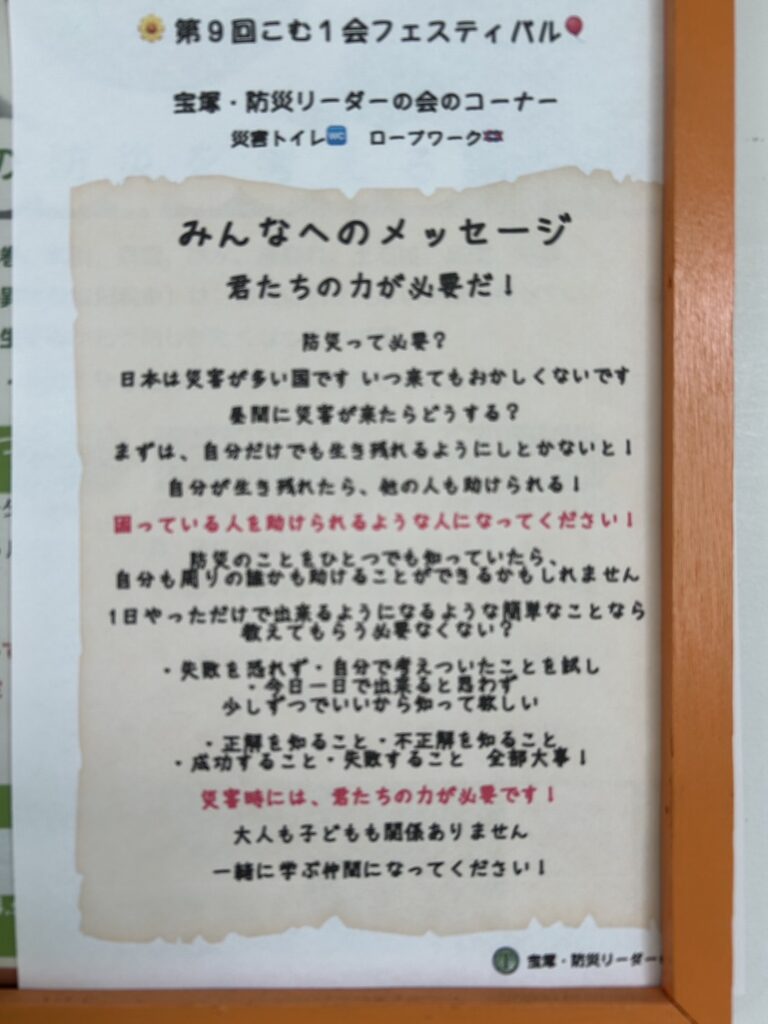 🌼 第9回こむ1会フェスティバル🎈
宝塚・防災リーダーの会のコーナー
災害トイレ🚾 ロープワーク🪢
みんなへのメッセージ
君たちの力が必要だ！
防災って必要？
日本は災害が多い国です いつ来てもおかしくないです
昼間に災害が来たらどうする？
まずは、自分だけでも生き残れるようにしとかないと！
自分が生き残れたら、他の人も助けられる！
困っている人を助けられるような人になってください！
防災のことをひとつでも知っていたら、
自分も周りの誰かも助けることができるかもしれません
1日やっただけで出来るようになるような簡単なことなら
教えてもらう必要なくない？
・失敗を恐れず・自分で考えついたことを試し
・今日一日で出来ると思わず
少しずつでいいから知って欲しい
・正解を知ること・不正解を知ること
・成功すること・失敗すること 全部大事！
災害時には、君たちの力が必要です！
大人も子どもも関係ありません
一緒に学ぶ仲間になってください！
宝塚・防災リーダー